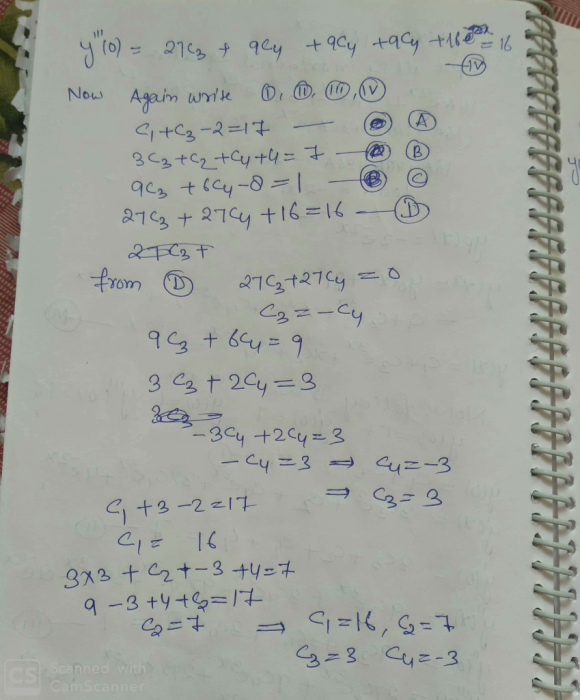 y'''(0) = 27C₃ + 9C₄ + 9C₄ + 9C₄ + 16 = 16
— IV
Now Again write I, II, III, IV
C₁ + C₃ - 2 = 17 — A
3C₃ + C₂ + C₄ + 4 = 7 — B
9C₃ + 6C₄ - 8 = 1 — C
27C₃ + 27C₄ + 16 = 16 — D
27C₃ +
from D 27C₃ + 27C₄ = 0
C₃ = -C₄
9C₃ + 6C₄ = 9
3C₃ + 2C₄ = 3
-3C₄ + 2C₄ = 3
-C₄ = 3 ⇒ C₄ = -3
⇒ C₃ = 3
C₁ + 3 - 2 = 17
C₁ = 16
3×3 + C₂ + -3 + 4 = 7
9 - 3 + 4 + C₂ = 17
C₂ = 7 ⇒ C₁ = 16, C₂ = 7
C₃ = 3 C₄ = -3
CS Scanned with
CamScanner